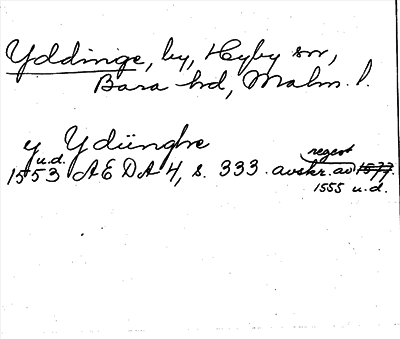 Yddinge, by, Hyby sn,
Bara hd, Malm. l.
y Ydünghe
u.d. regest
1553 AEDA 4, s. 333. avskr. av 1577.
1555 u.d.